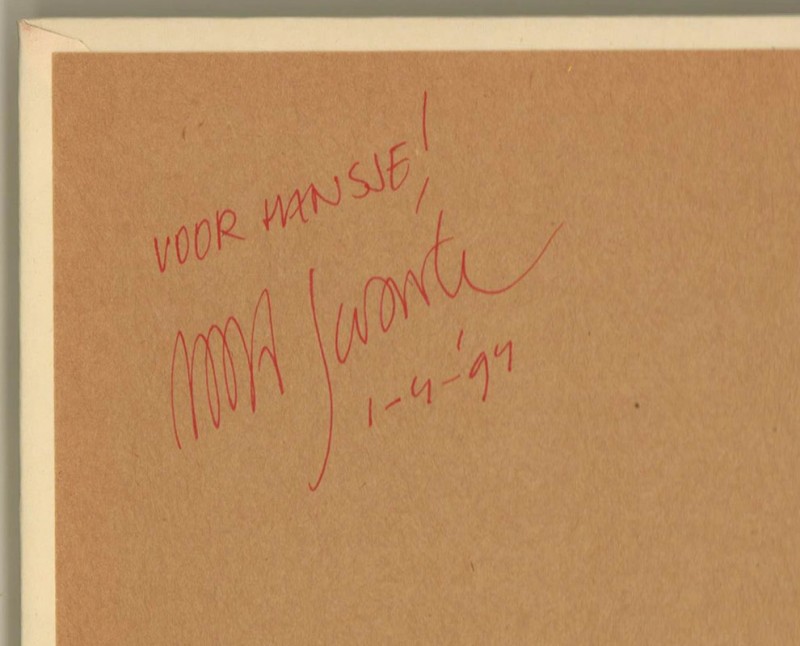 VOOR HANSJE!
Joost Swarte
1-4-'94